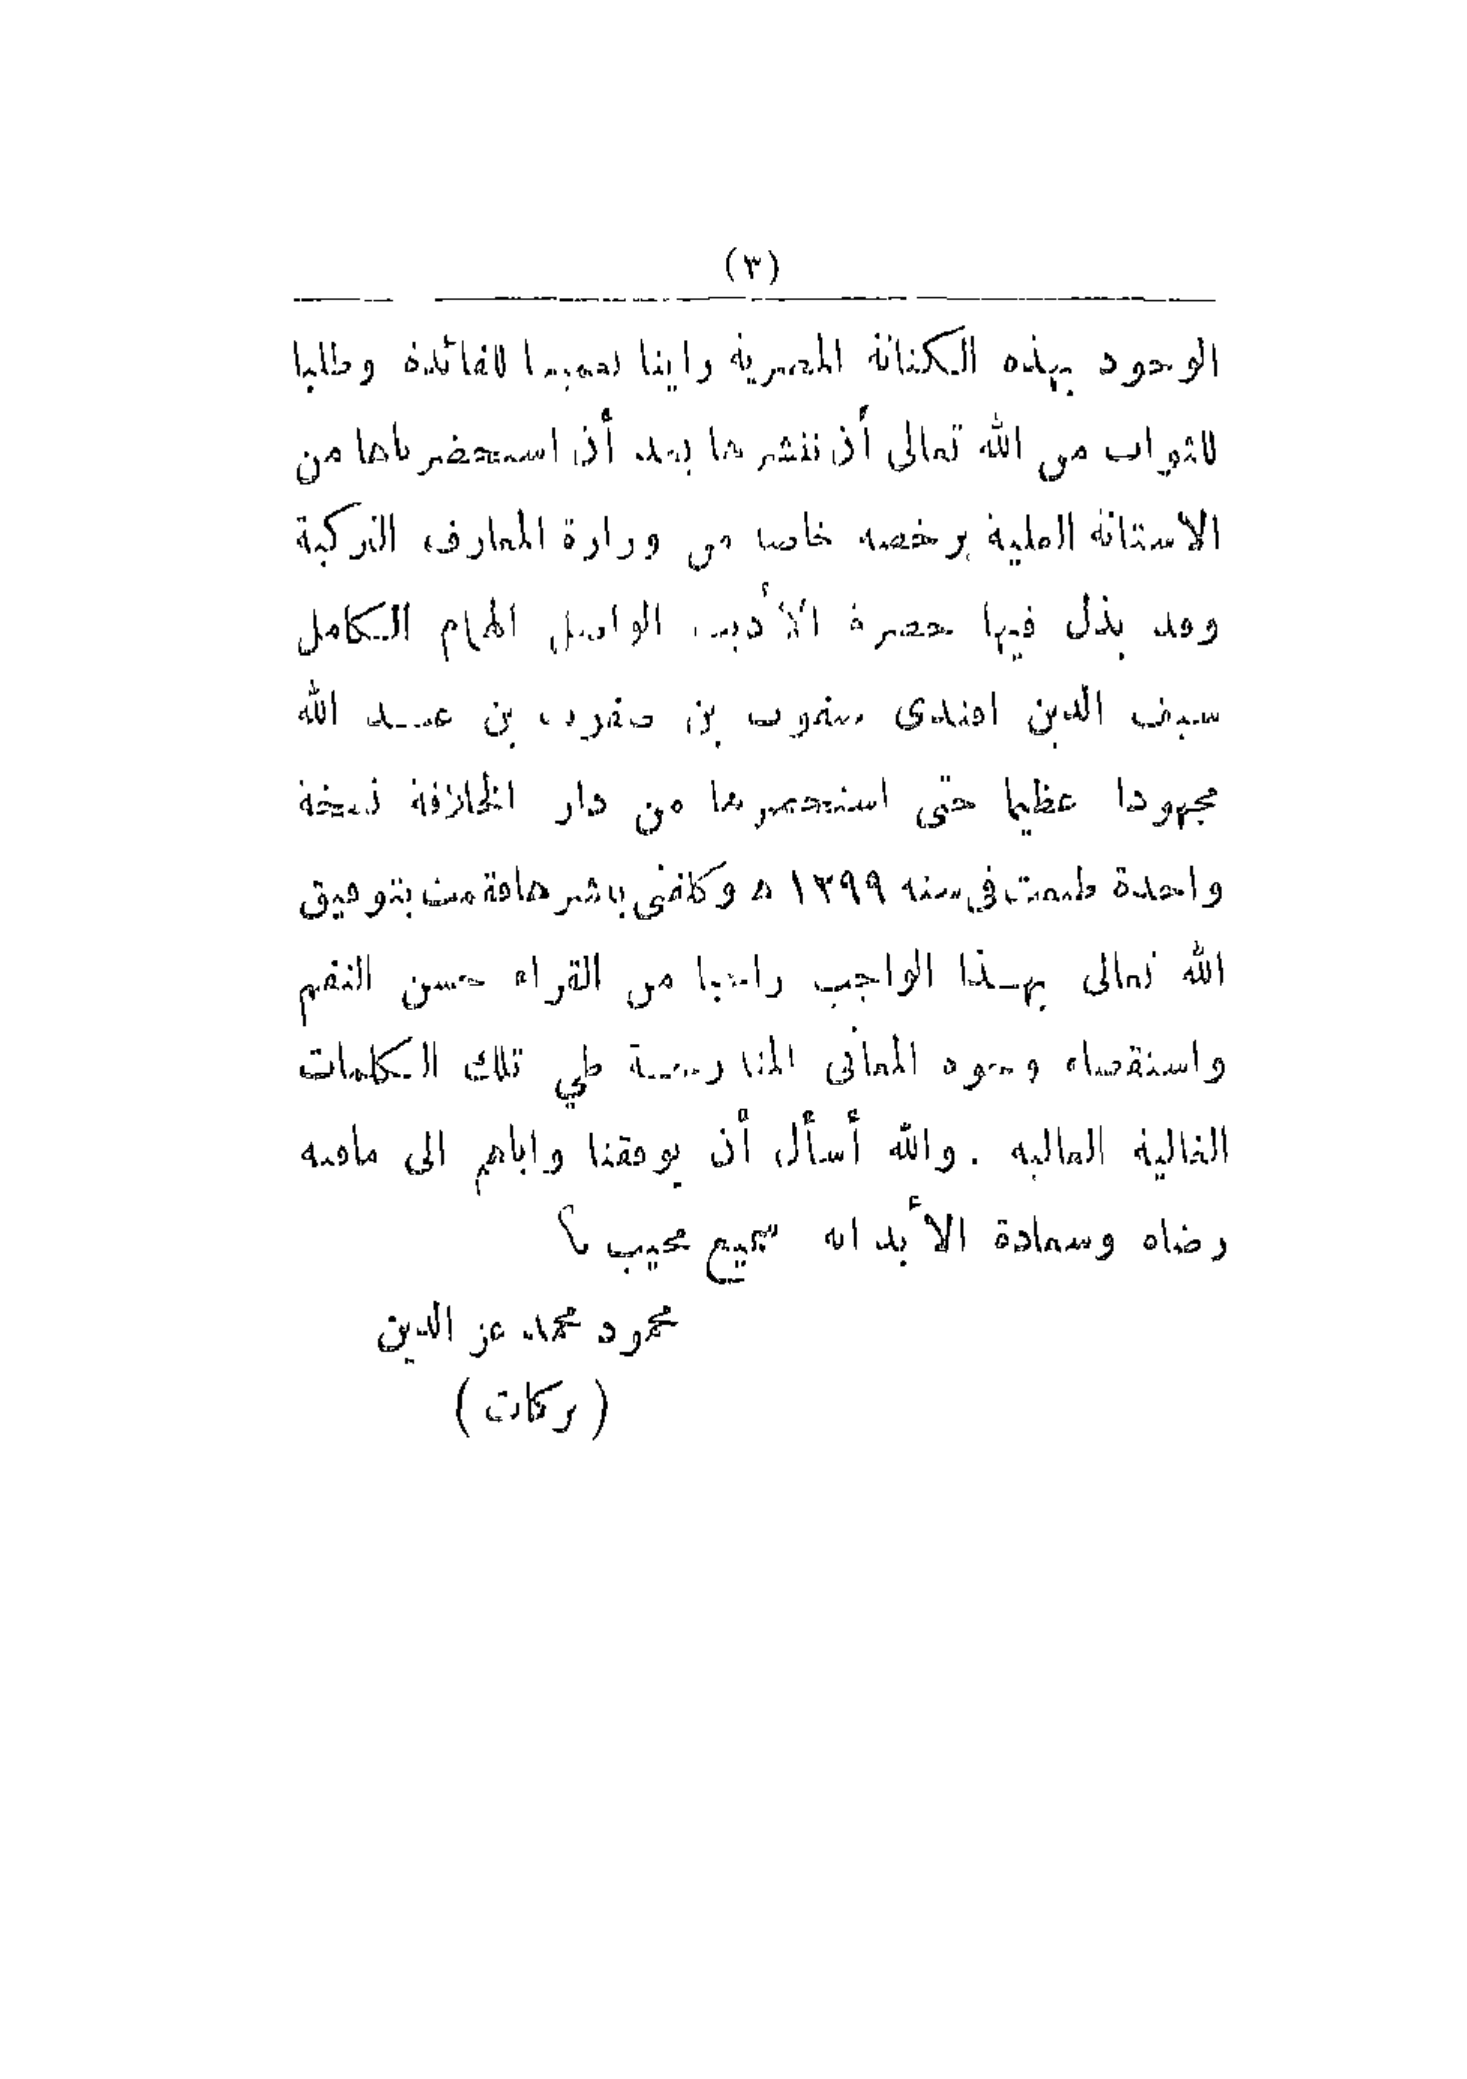 (٣)
الوجود بهذه الكنانة المصرية راينا تعميما للفائدة وطلبا
للثواب من الله تعالى أن ننشرها بعد أن استحضرناها من
الاستانة العلية برخصه خاصة من وزارة المعارف التركية
وقد بذل فيها حضرة الأديب الفاضل الهمام الكامل
سيف الدين افندى بن بن عبد الله
مجهودا عظيما حتى استحضرها من دار الخلافة نسخة
واحدة طبعت فى سنه ١٢٩٩ ه وكلفنى بنشرها فقمت بتوفيق
الله تعالى بهذا الواجب راجيا من القراء حسن التفهم
واستقصاء وجوه المعانى طي تلك الكلمات
الغالية العاليه . والله أسأل أن يوفقنا واياهم الى مافيه
رضاه وسعادة الأبد انه سميع مجيب ؟
محمود محمد عز الدين
( بركات )